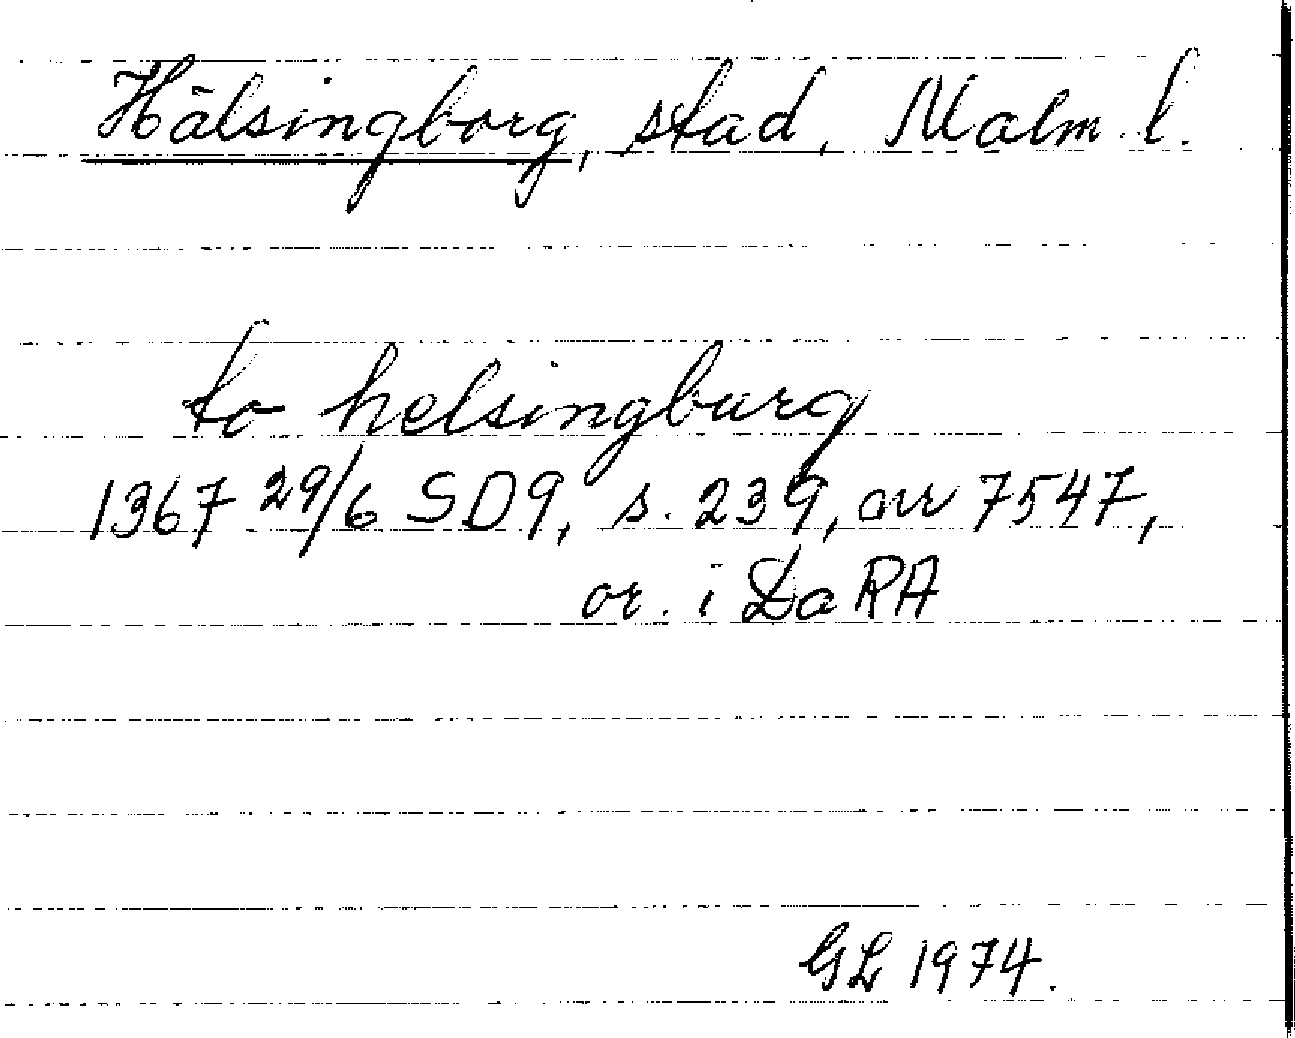 Hälsingborg, stad, Malm. l.
to helsingburg
1367 29/6 SD9, s. 239, nr 7547,
or. i Da RA
GL 1974.